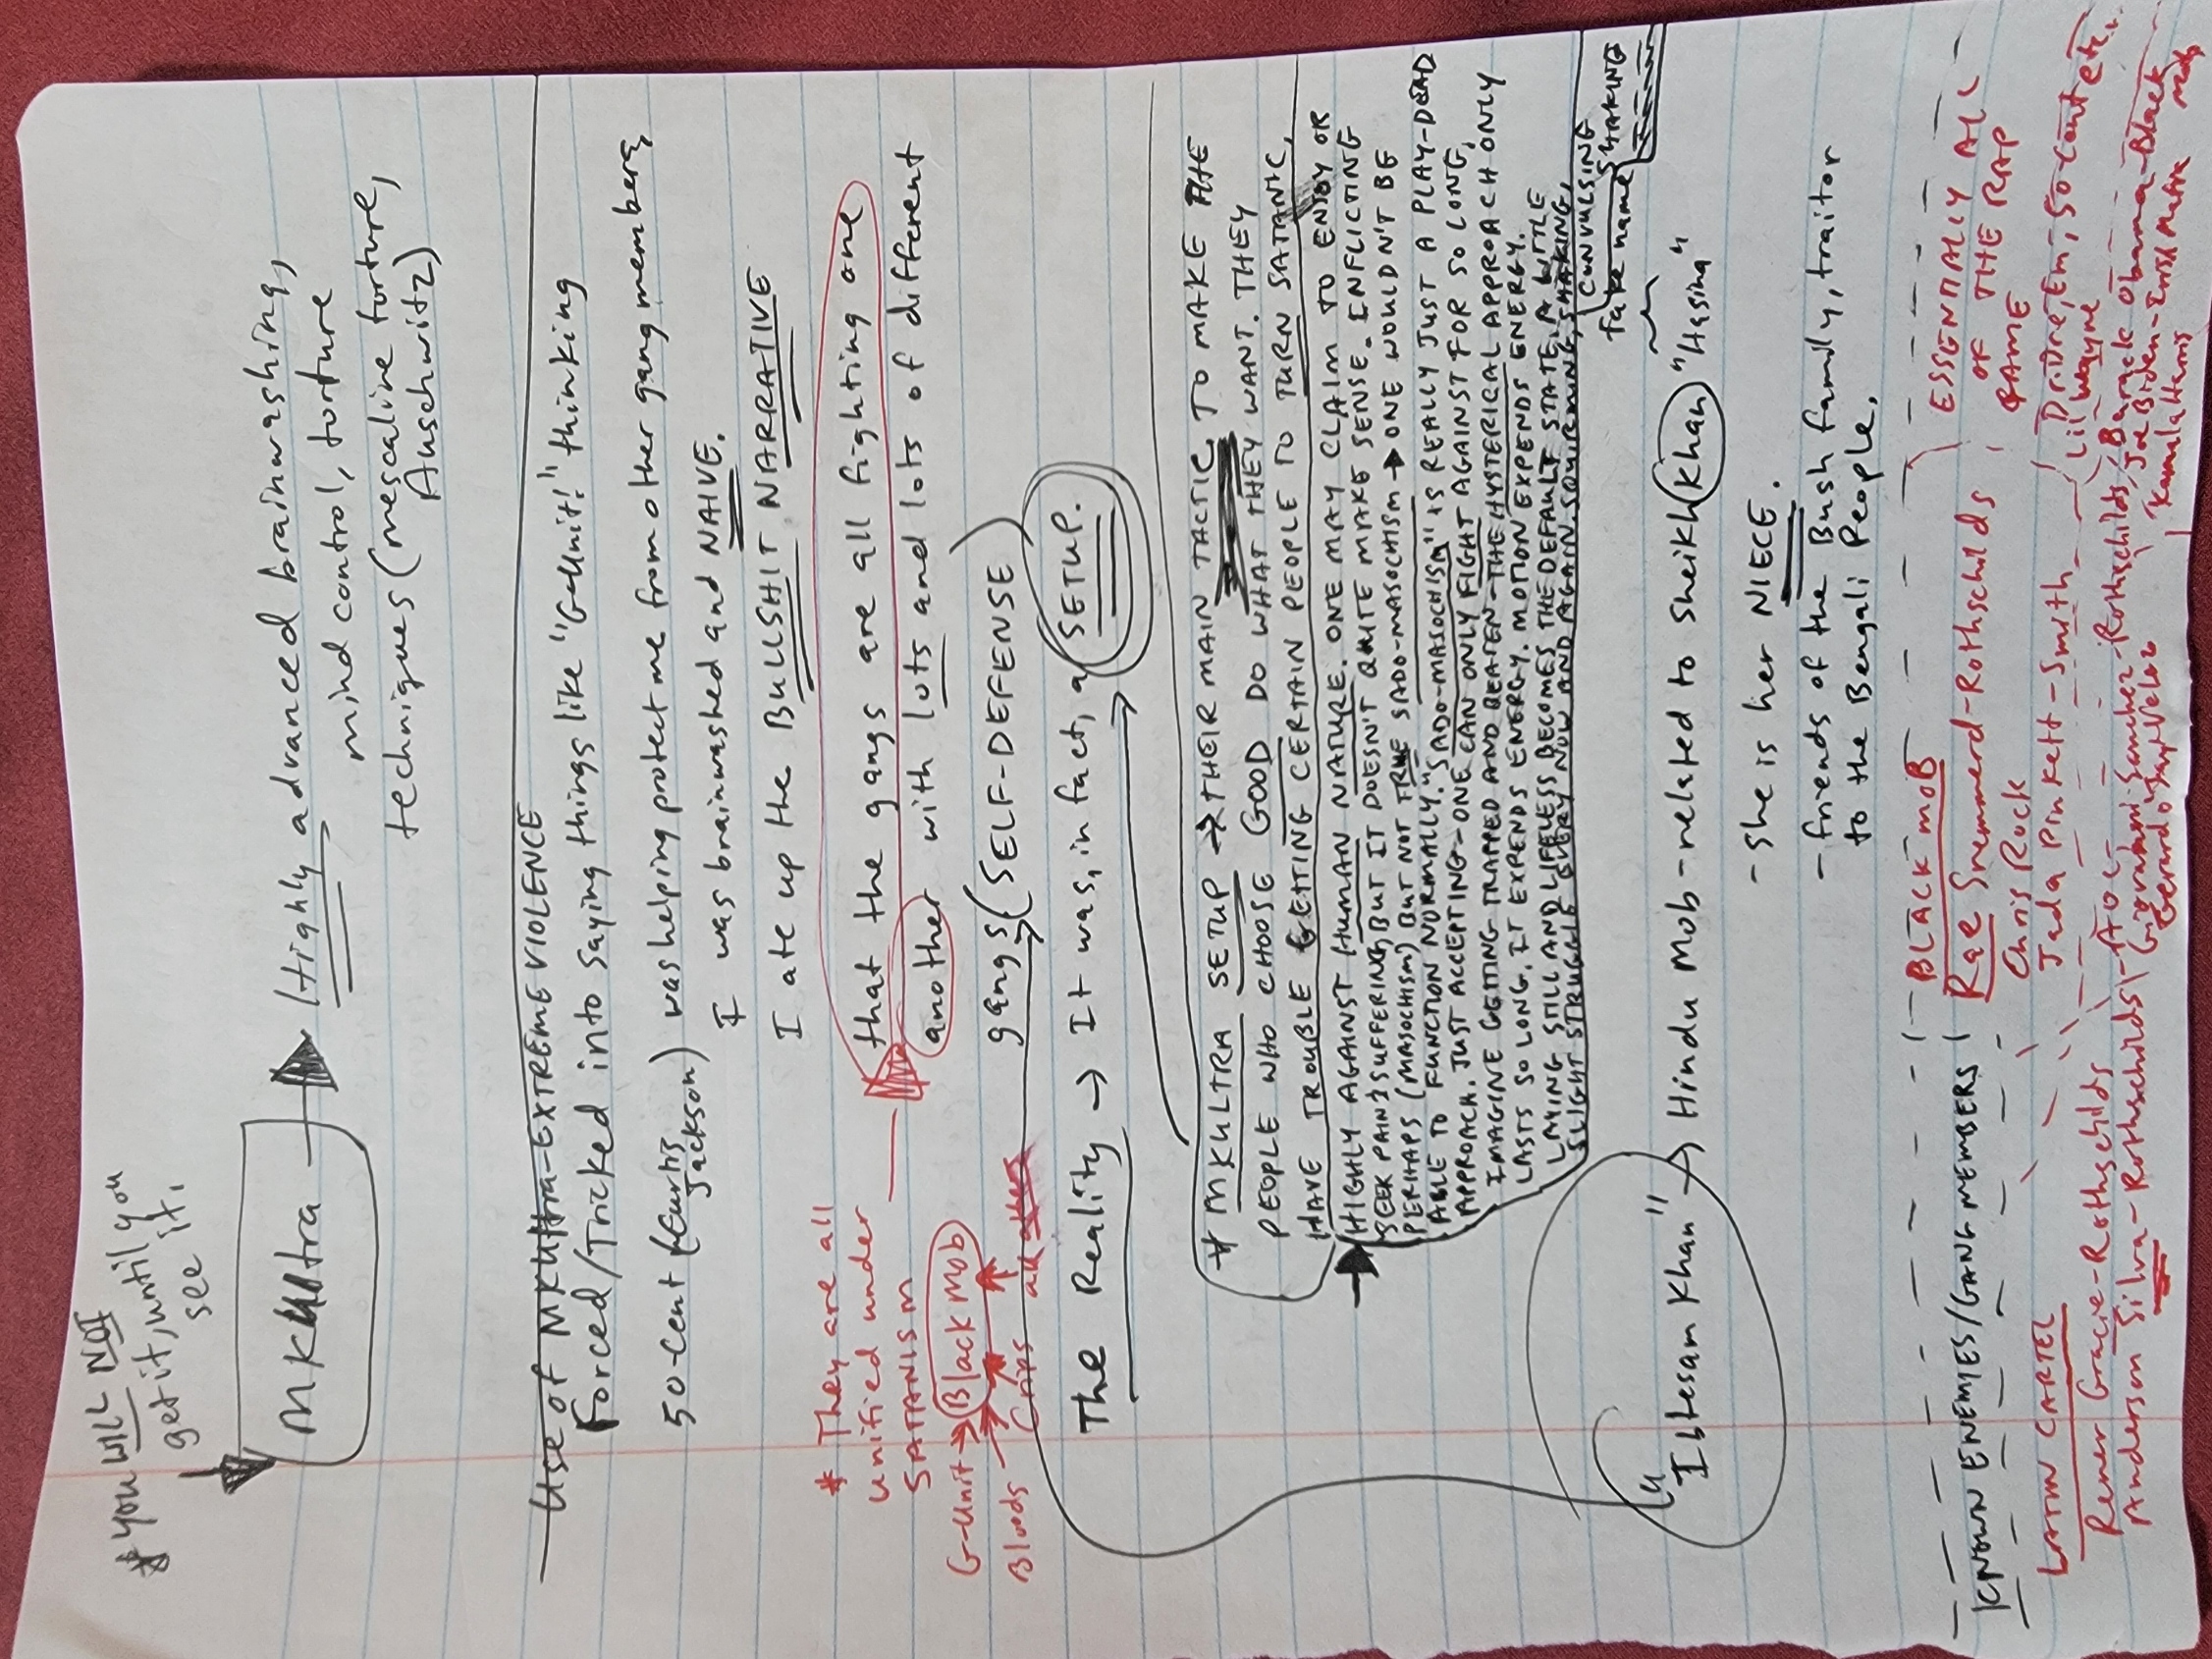 * YOU WILL NOT
get it, until you
see it.
MKUltra
Highly advanced brainwashing,
mind control, torture
techniques (mescaline torture,
Auschwitz)
Use of MKUltra-EXTREME VIOLENCE
Forced/Tricked into saying things like "G-Unit!" thinking
50-Cent (Curtis Jackson) was helping protect me from other gang members,
I was brainwashed and NAIVE.
I ate up the BULLSHIT NARRATIVE
* They are all
unified under
SATANISM
that the gangs are all fighting one
another with lots and lots of different
gangs (SELF-DEFENSE)
G-Unit → Black Mob
Bloods Crips all others
The Reality → It was, in fact, a SETUP.
* MKULTRA SETUP → THEIR MAIN TACTIC TO MAKE THE
PEOPLE WHO CHOOSE GOOD DO WHAT THEY WANT. THEY
HAVE TROUBLE GETTING CERTAIN PEOPLE TO TURN SATANIC,
HIGHLY AGAINST HUMAN NATURE. ONE MAY CLAIM TO ENJOY OR
SEEK PAIN & SUFFERING, BUT IT DOESN'T QUITE MAKE SENSE. INFLICTING
PERHAPS (MASOCHISM) BUT NOT TRUE SADO-MASOCHISM → ONE WOULDN'T BE
ABLE TO FUNCTION NORMALLY. "SADO-MASOCHISM" IS REALLY JUST A PLAY-DEAD
APPROACH. JUST ACCEPTING - ONE CAN ONLY FIGHT AGAINST FOR SO LONG,
IMAGINE GETTING TRAPPED AND BEATEN - THE HYSTERICAL APPROACH ONLY
LASTS SO LONG, IT EXPENDS ENERGY. MOTION EXPENDS ENERGY.
LAYING STILL AND LIFELESS BECOMES THE DEFAULT STATE, A LITTLE
SLIGHT STRUGGLE EVERY NOW AND AGAIN. SQUIRMING, SHAKING,
CONVULSING
SHAKING
fake name
"Ibtesam Khan" → Hindu Mob - related to Sheikh Khan "Hasina"
- she is her NIECE.
- friends of the Bush family, traitor
to the Bengali People.
KNOWN ENEMIES/GANG MEMBERS
BLACK MOB
Rae Sremmerd-Rothschilds
Chris Rock
Jada Pinkett-Smith
ESSENTIALLY ALL
OF THE RAP
GAME
Dr. Dre, Em, 50-Cent etc.
Lil Wayne
LATIN CARTEL
Rener Gracie-Rothschilds
Anderson Silva-Rothschilds
AOC
Giovanni Sanchez-Rothschilds
Gerardo
Barack Obama-Black Mob
Joe Biden-Irish Mafia
Kamala Harris